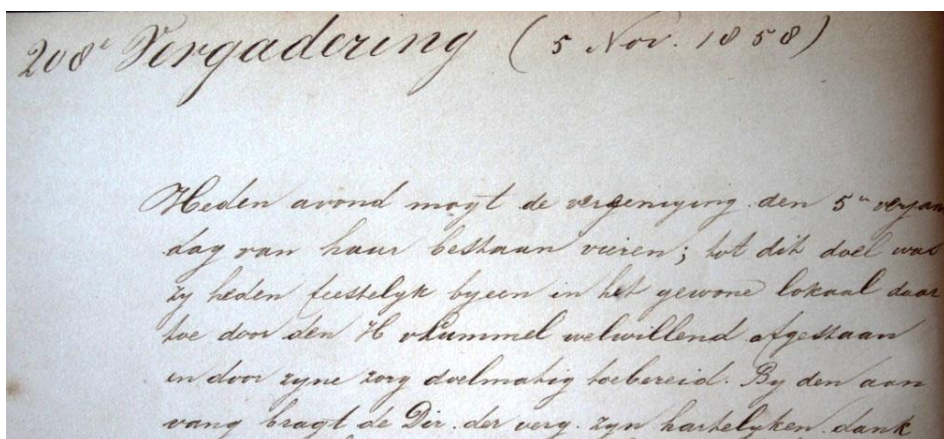 208e Vergadering (5 Nov. 1858)
Heden avond mogt de vereeniging den 5n verjaar
dag van haar bestaan vieren; tot dit doel was
zy heden feestelyk byeen in het gewone lokaal daar
toe door den H vLummel welwillend afgestaan
en door zyne zorg doelmatig toebereid. By den aan
vang bragt de Dir. der verg. zyn hartelyken dank